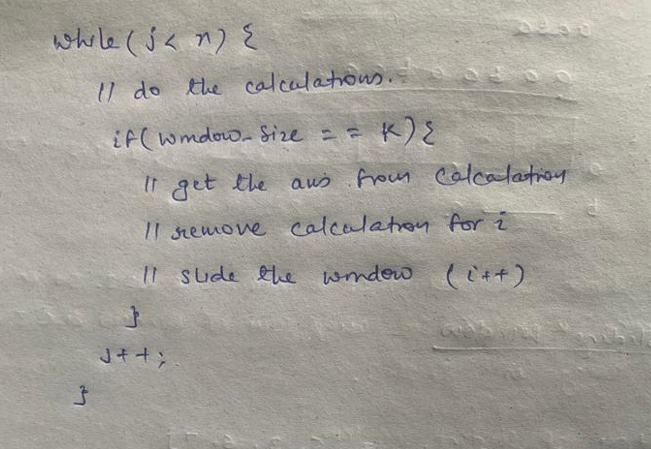 while (j < n) {
// do the calculations.
if (window_size == K) {
// get the ans from calculation
// remove calculation for i
// slide the window (i++)
}
j++;
}